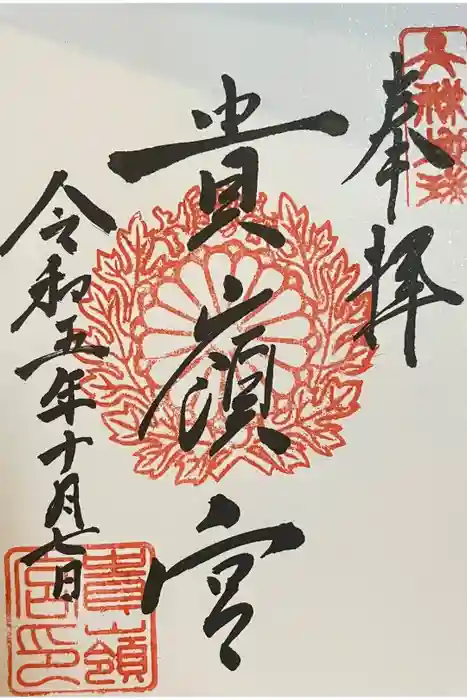 奉拝
貴嶺宮
令和五年十月七日